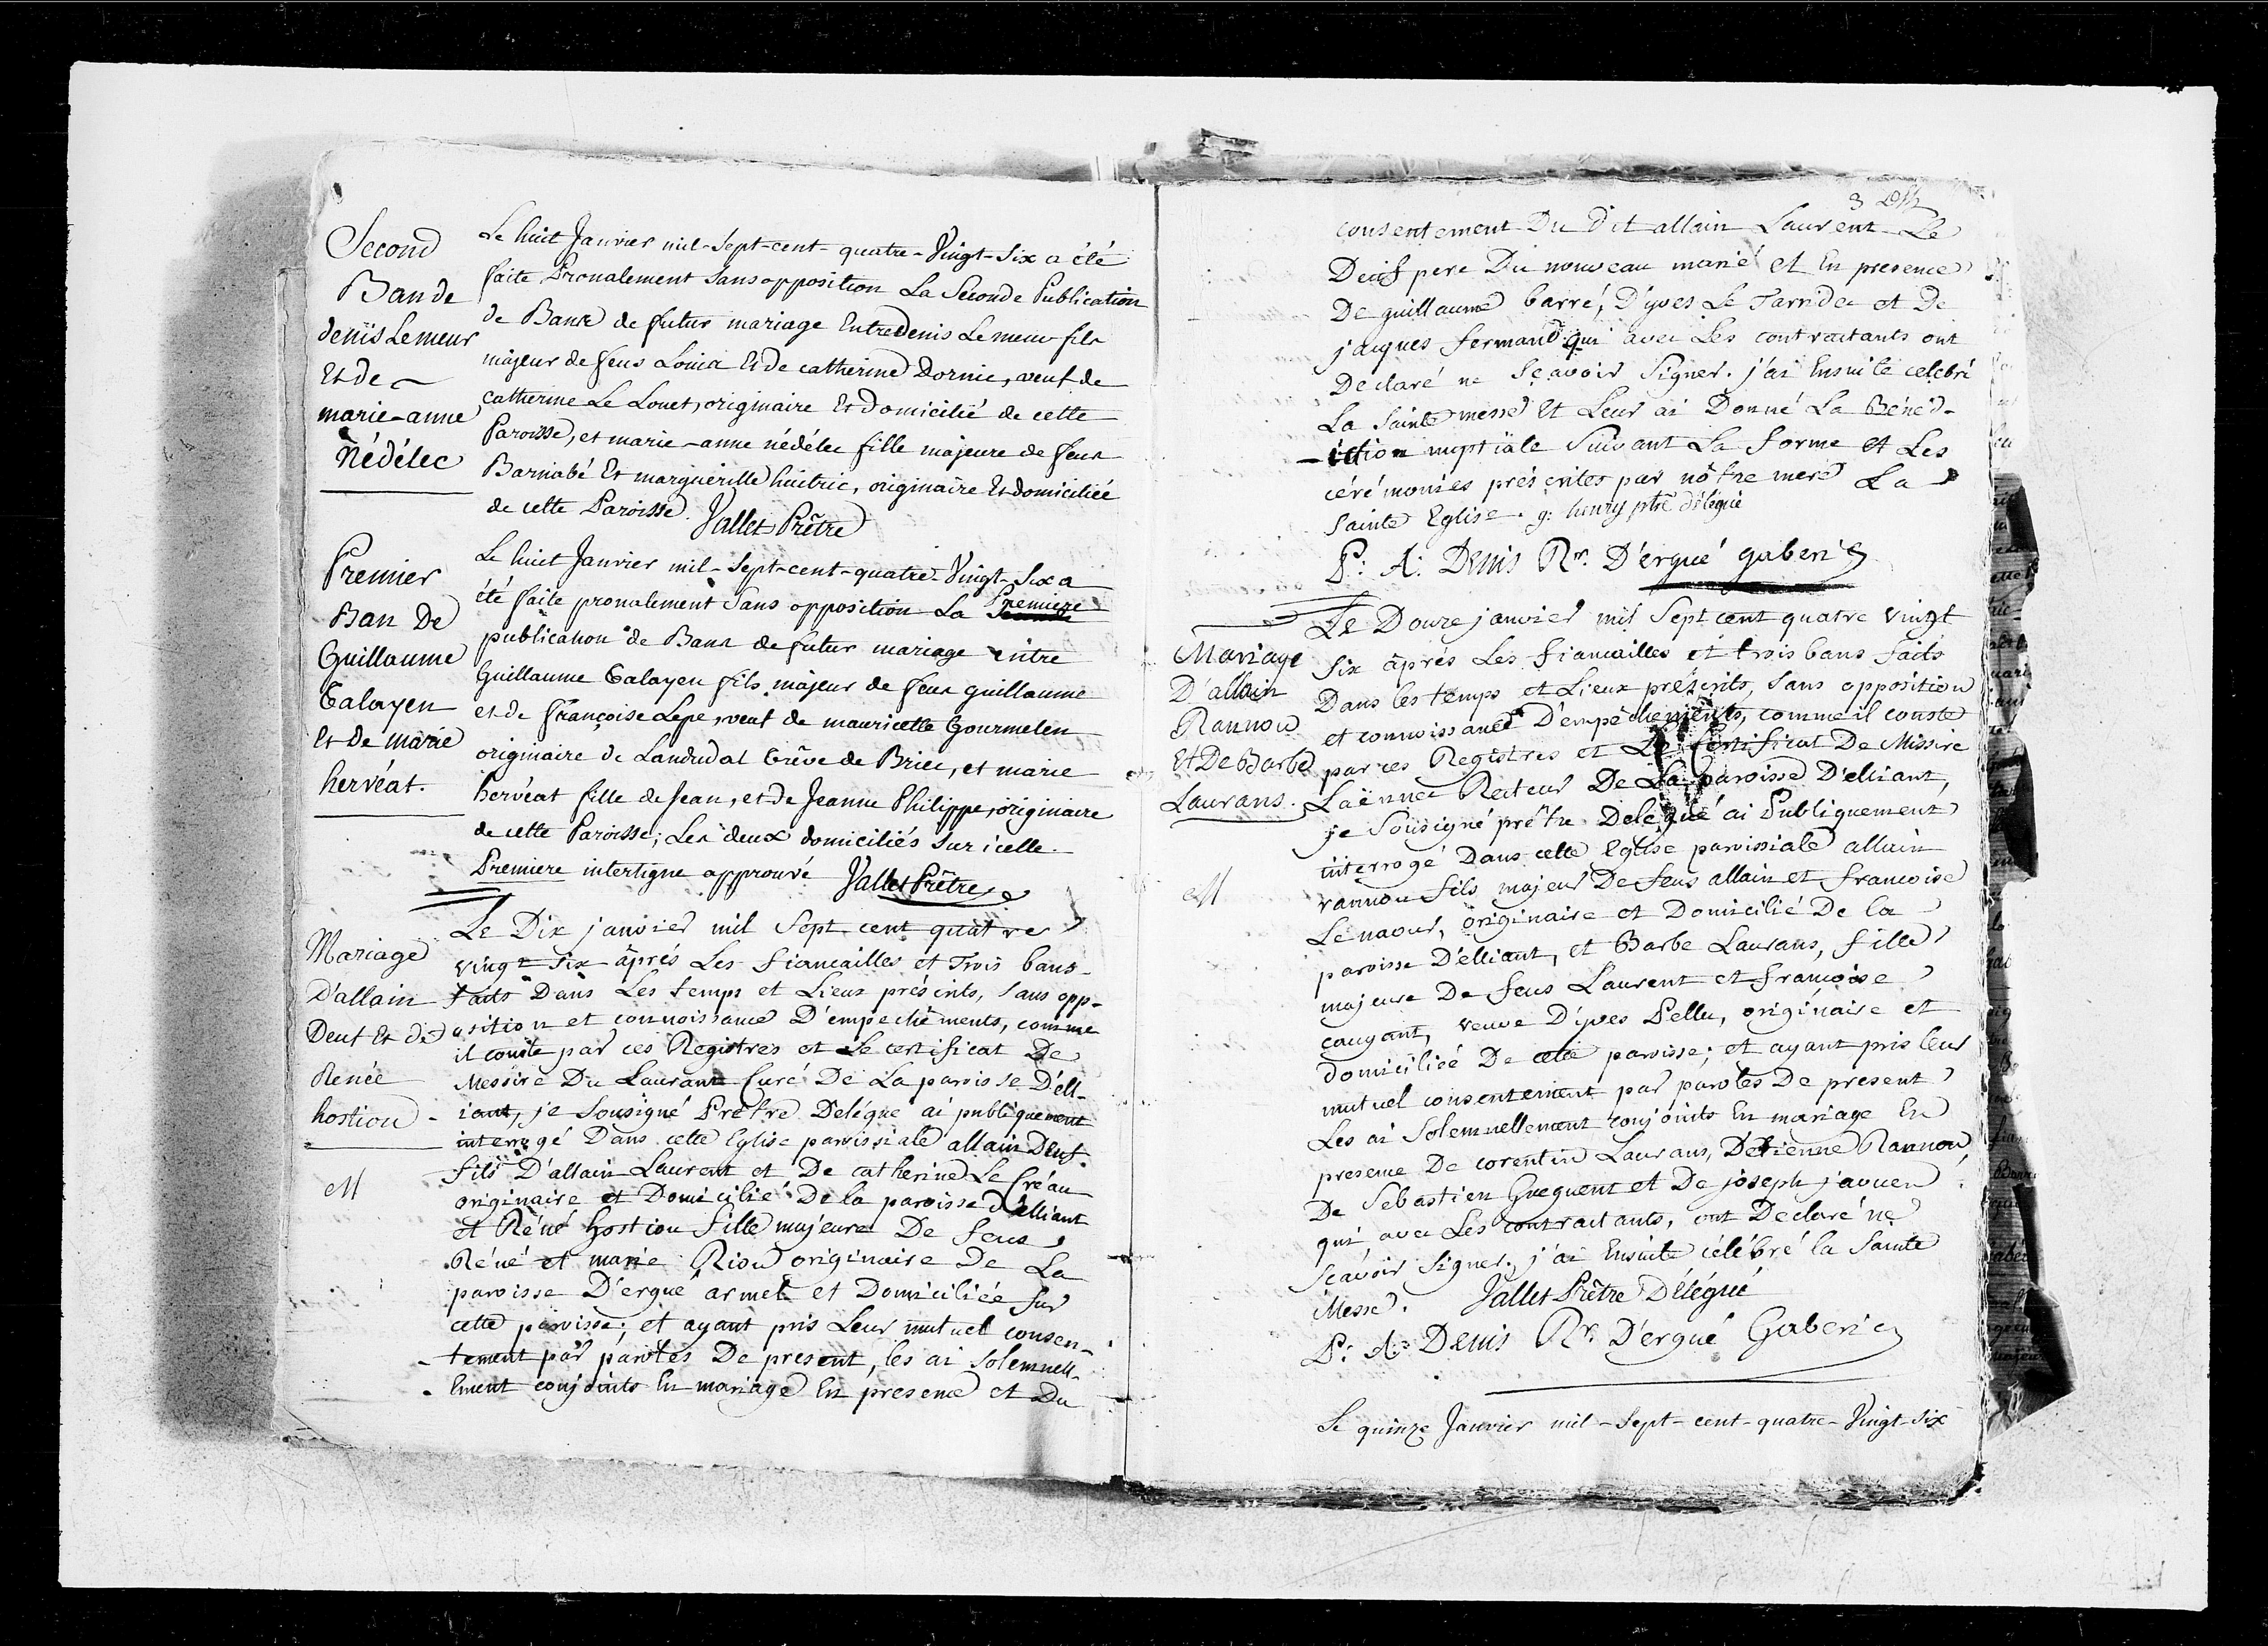 Second
Ban de
denïs Lemeur
Et de
marie-anne
Nédélec
Le huit Janvier mil-Sept-cent-quatre-Vingt-Six a été
faite Pronalement Sans opposition La Seconde Publication
de Bans de futur mariage Entre Denis Lemeur fils
majeur de feus Louis Et de catherine Dornic, veuf de
catherine Le Louet, originaire Et Domicilié de cette
Paroisse, et marie-anne nédélec fille majeure de feus
Barnabé Et margueritte huitric, originaire Et domiciliée
de cette Paroisse. Vallet Prêtre
Premier
Ban De
Guillaume
Calayen
Et De marie
hervéat.
Le huit Janvier mil-Sept-cent-quatre-Vingt-Six a
été faite pronalement Sans opposition La Premiere Seconde
publication de Bans de futur mariage entre
Guillaume Calayen fils majeur de feus guillaume
et de françoise Lepe, veuf de mauricette Gourmelen
originaire de Landudal trêve de Briec, et marie
hervéat fille de Jean, et de Jeanne Philippe, originaire
de cette Paroisse; Les deux domiciliés Sur icelle.
Premiere interligne approuvé Vallet Prêtre
Mariage
D'allain
Deuf Et de
Renée
hostiou
M
Le Dix janvier mil Sept cent quatre
vingt Six âprés Les fiancailles et Trois bans
faits Dans Les temps et Lieux préscrits, Sans opp-
osition et connoissance D'empechéments, comme
il conste par ces Registres et Le certificat De
Messire Du Laurant Curé De La paroisse D'ell-
iant, je Sousigné Prêtre Delégué ai publiquement
interrogé Dans cette Eglise paroissiale allain Deuf
fils D'allain Laurent et De catherine Le Creau
originaire et Domicilié De la paroisse d'elliant
et Réné Hostiou fille majeure De feus
Réné et marie Riou originaire De La
paroisse D'ergué armel et Domiciliée Sur
cette paroisse; et ayant pris Leur mutuel consen-
-tement par paroles De present, les ai Solemnell-
-Ement conjoints En mariage En presence et Du
3
consentement Du Dit allain Laurent Le
Deuf pere Du nouveau marié et En presence
De guillaume barré, D'yves Le Tarridec et De
jacques fermand qui avec Les contractants ont
Declaré ne Sçavoir Signer. j'ai Ensuite celebré
La Sainte messe Et Leur ai Donné La Bénéd-
-iction nuptiale Suivant La forme et Les
cérémonies préscrites par nôtre mere La
Sainte Eglise. g: henry ptre délégué
P: A: Denis Rr. D'ergué gaberic
Mariage
D'allain
Rannou
Et De Barbe
Laurans.
M
Le Douze janvier mil Sept cent quatre vingt
Six âprés Les fiancailles et trois bans faits
Dans les temps et Lieux préscrits, Sans opposition
et connoissance D'empêchements, comme il conste
par ces Registres et Le Certificat De Missire
Laënnec Recteur De La paroisse D'elliant,
je Sousigné prêtre Delégué ai Publiquement
interrogé Dans cette Eglise paroissiale allain
rannou fils majeur De feus allain et francoise
Lenaour, originaire et Domicilié De la
paroisse D'elliant, et Barbe Laurans, fille
majeure De feus Laurent et francoise
caugant, veuve D'yves Pellu, originaire et
domiciliée De cette paroisse; et ayant pris leur
mutuel consentement par paroles De present
Les ai Solemnellement conjoints En mariage En
presence De corentin Laurans, D'etienne Rannou,
De Sebastien Gueguent et De joseph jaouen
qui avec Les contractants, ont Declaré ne
Sçavoir Signer. j'ai Ensuite célébré la Sainte
Messe. Vallet Prêtre Délégué
P: A: Denis Rr. D'ergué Gaberic
Le quinze Janvier mil-Sept-cent-quatre-Vingt-Six